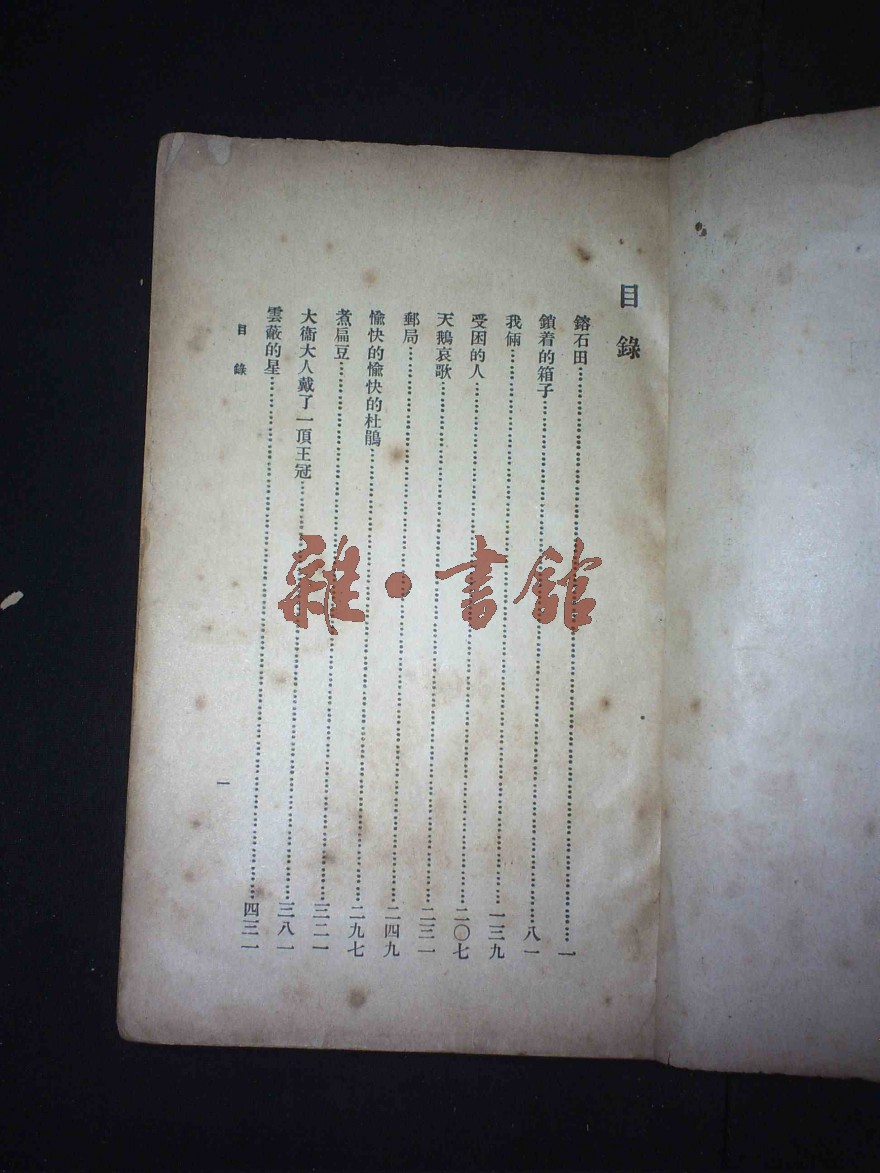 目錄
鎔石田……一
鎖着的箱子……八一
我倆……一三九
受困的人……二〇七
天鵝哀歌……二三一
郵局……二四九
愉快的愉快的杜鵑……二九七
煮扁豆……三二一
大衞大人戴了一頂王冠……三八一
雲蔽的星……四三一
目錄
一
雜·書館